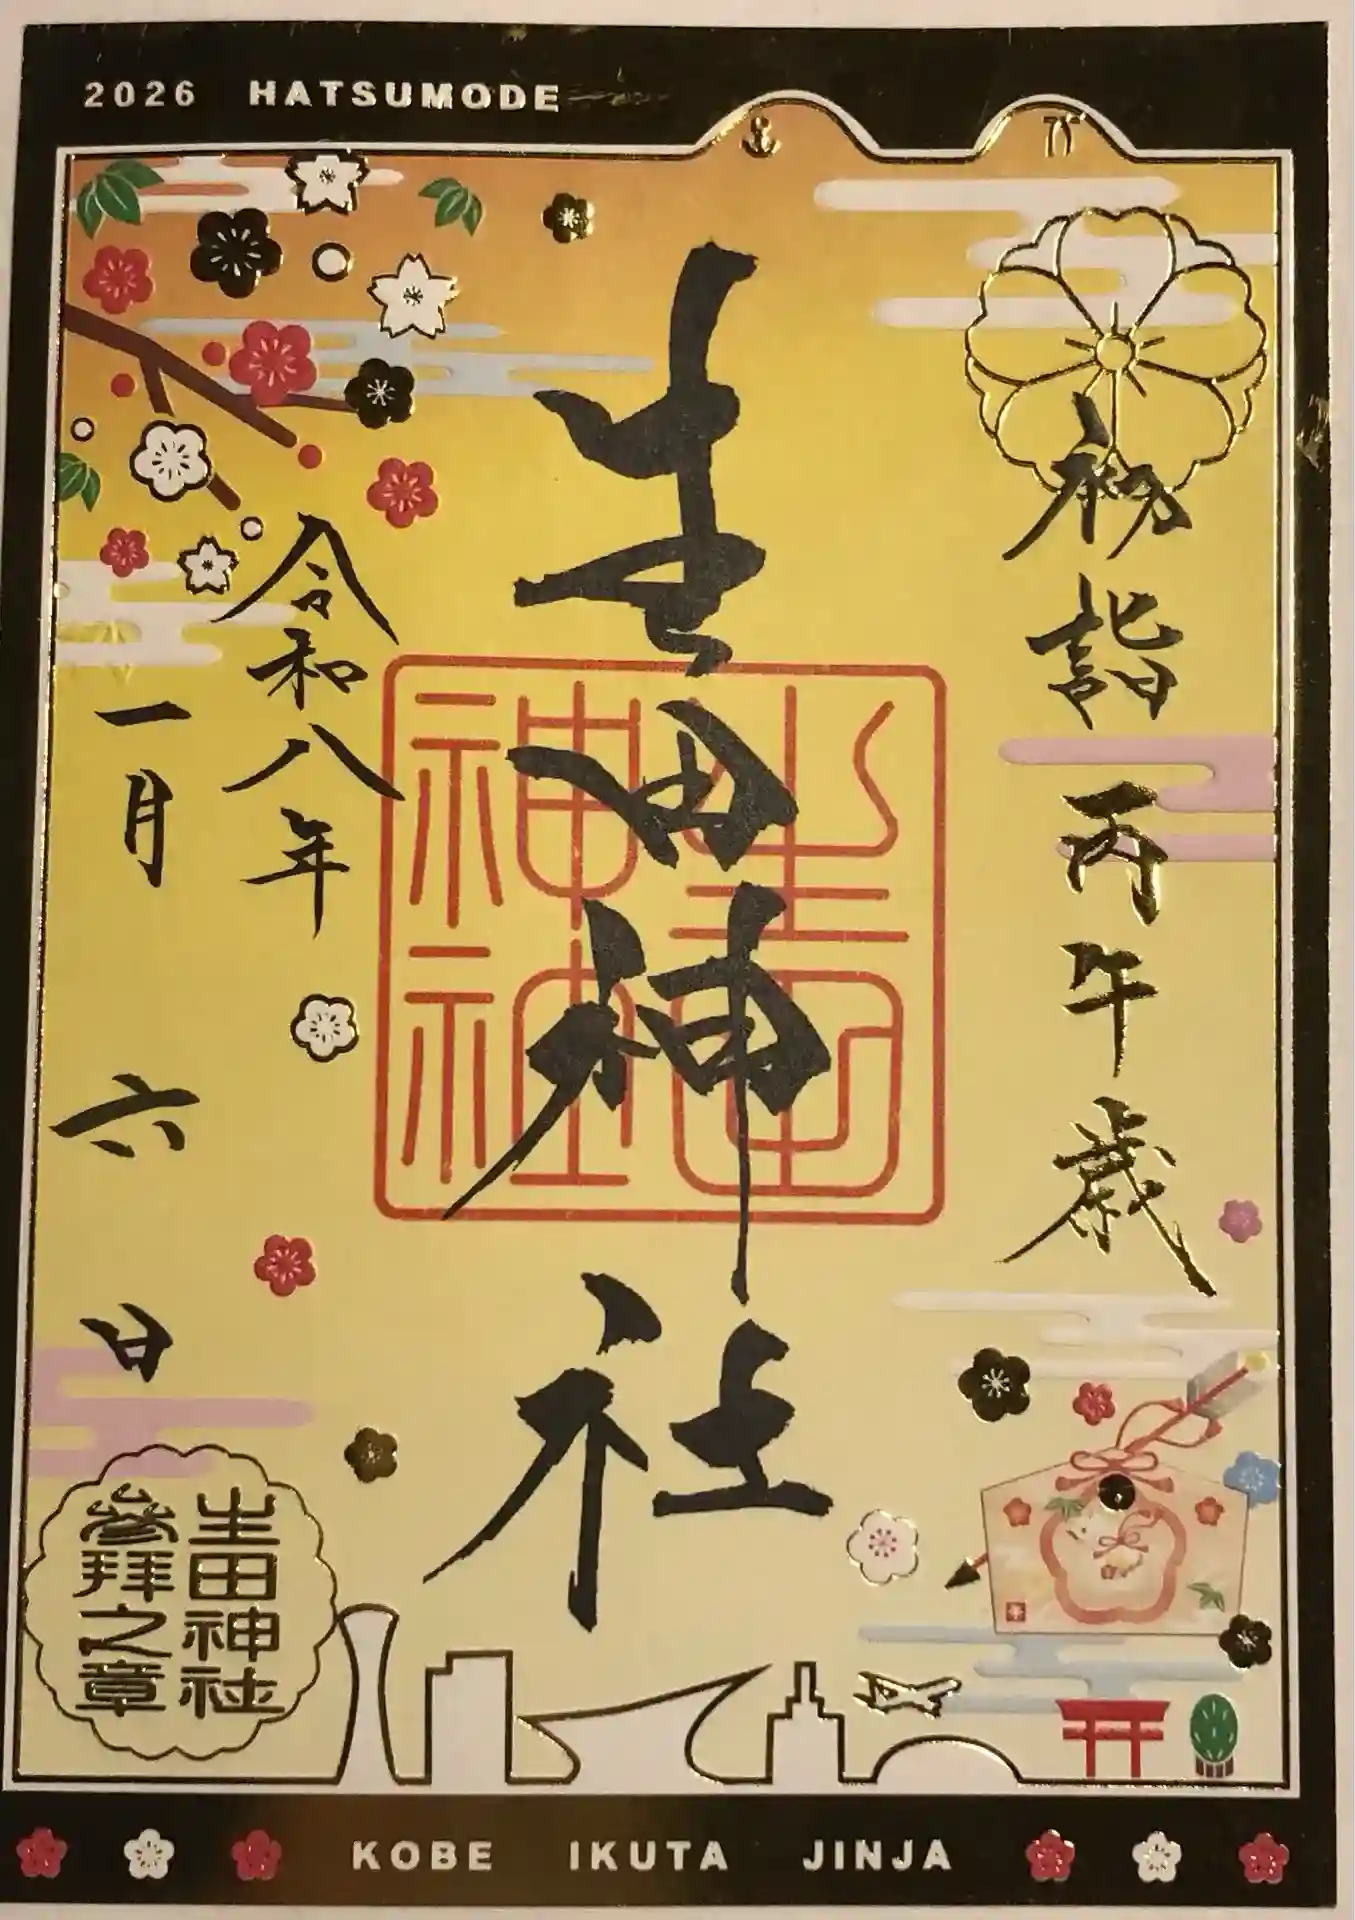 2026 HATSUMODE
初詣 丙午歳
生田神社
生田神社
令和八年
一月 六 日
生田神社
參拜之章
KOBE IKUTA JINJA